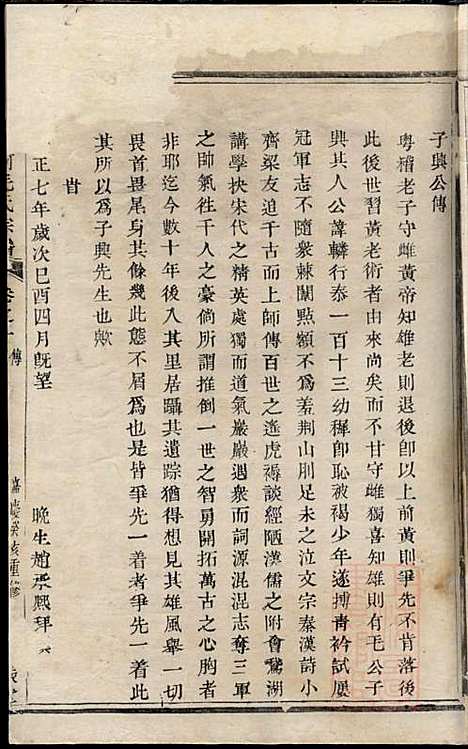 子興公傳
粵稽老子守雌黃帝知雄老則退後卽以上前黃則爭先不肯落後
此後世習黃老術者由來尚矣而不甘守雌獨喜知雄則有毛公子
興其人公諱轔行泰一百十三幼穉卽恥被褐少年遂搏青衿試屢
冠軍志不隨衆棘闈點額不爲羞荆山刖足未之泣文宗秦漢詩小
齊梁友迫千古而上師傳百世之遙虎褥談經陋漢儒之附會鵞湖
講學抉宋代之精英處獨而道氣巖巖遇衆而詞源混混志奪三軍
之帥氣徃千人之豪倘所謂推倒一世之智勇開拓萬古之心胸者
非耶迄今數十年後入其里居躡其遺踪猶得想見其雄風舉一切
畏首畏尾身其餘幾此態不屑爲也是皆爭先一着者爭先一着此
其所以爲子興先生也歟
旹
正七年歲次巳酉四月旣望
晚生趙丞熙拜
毛氏宗譜
卷之
傳
嘉慶癸亥重修